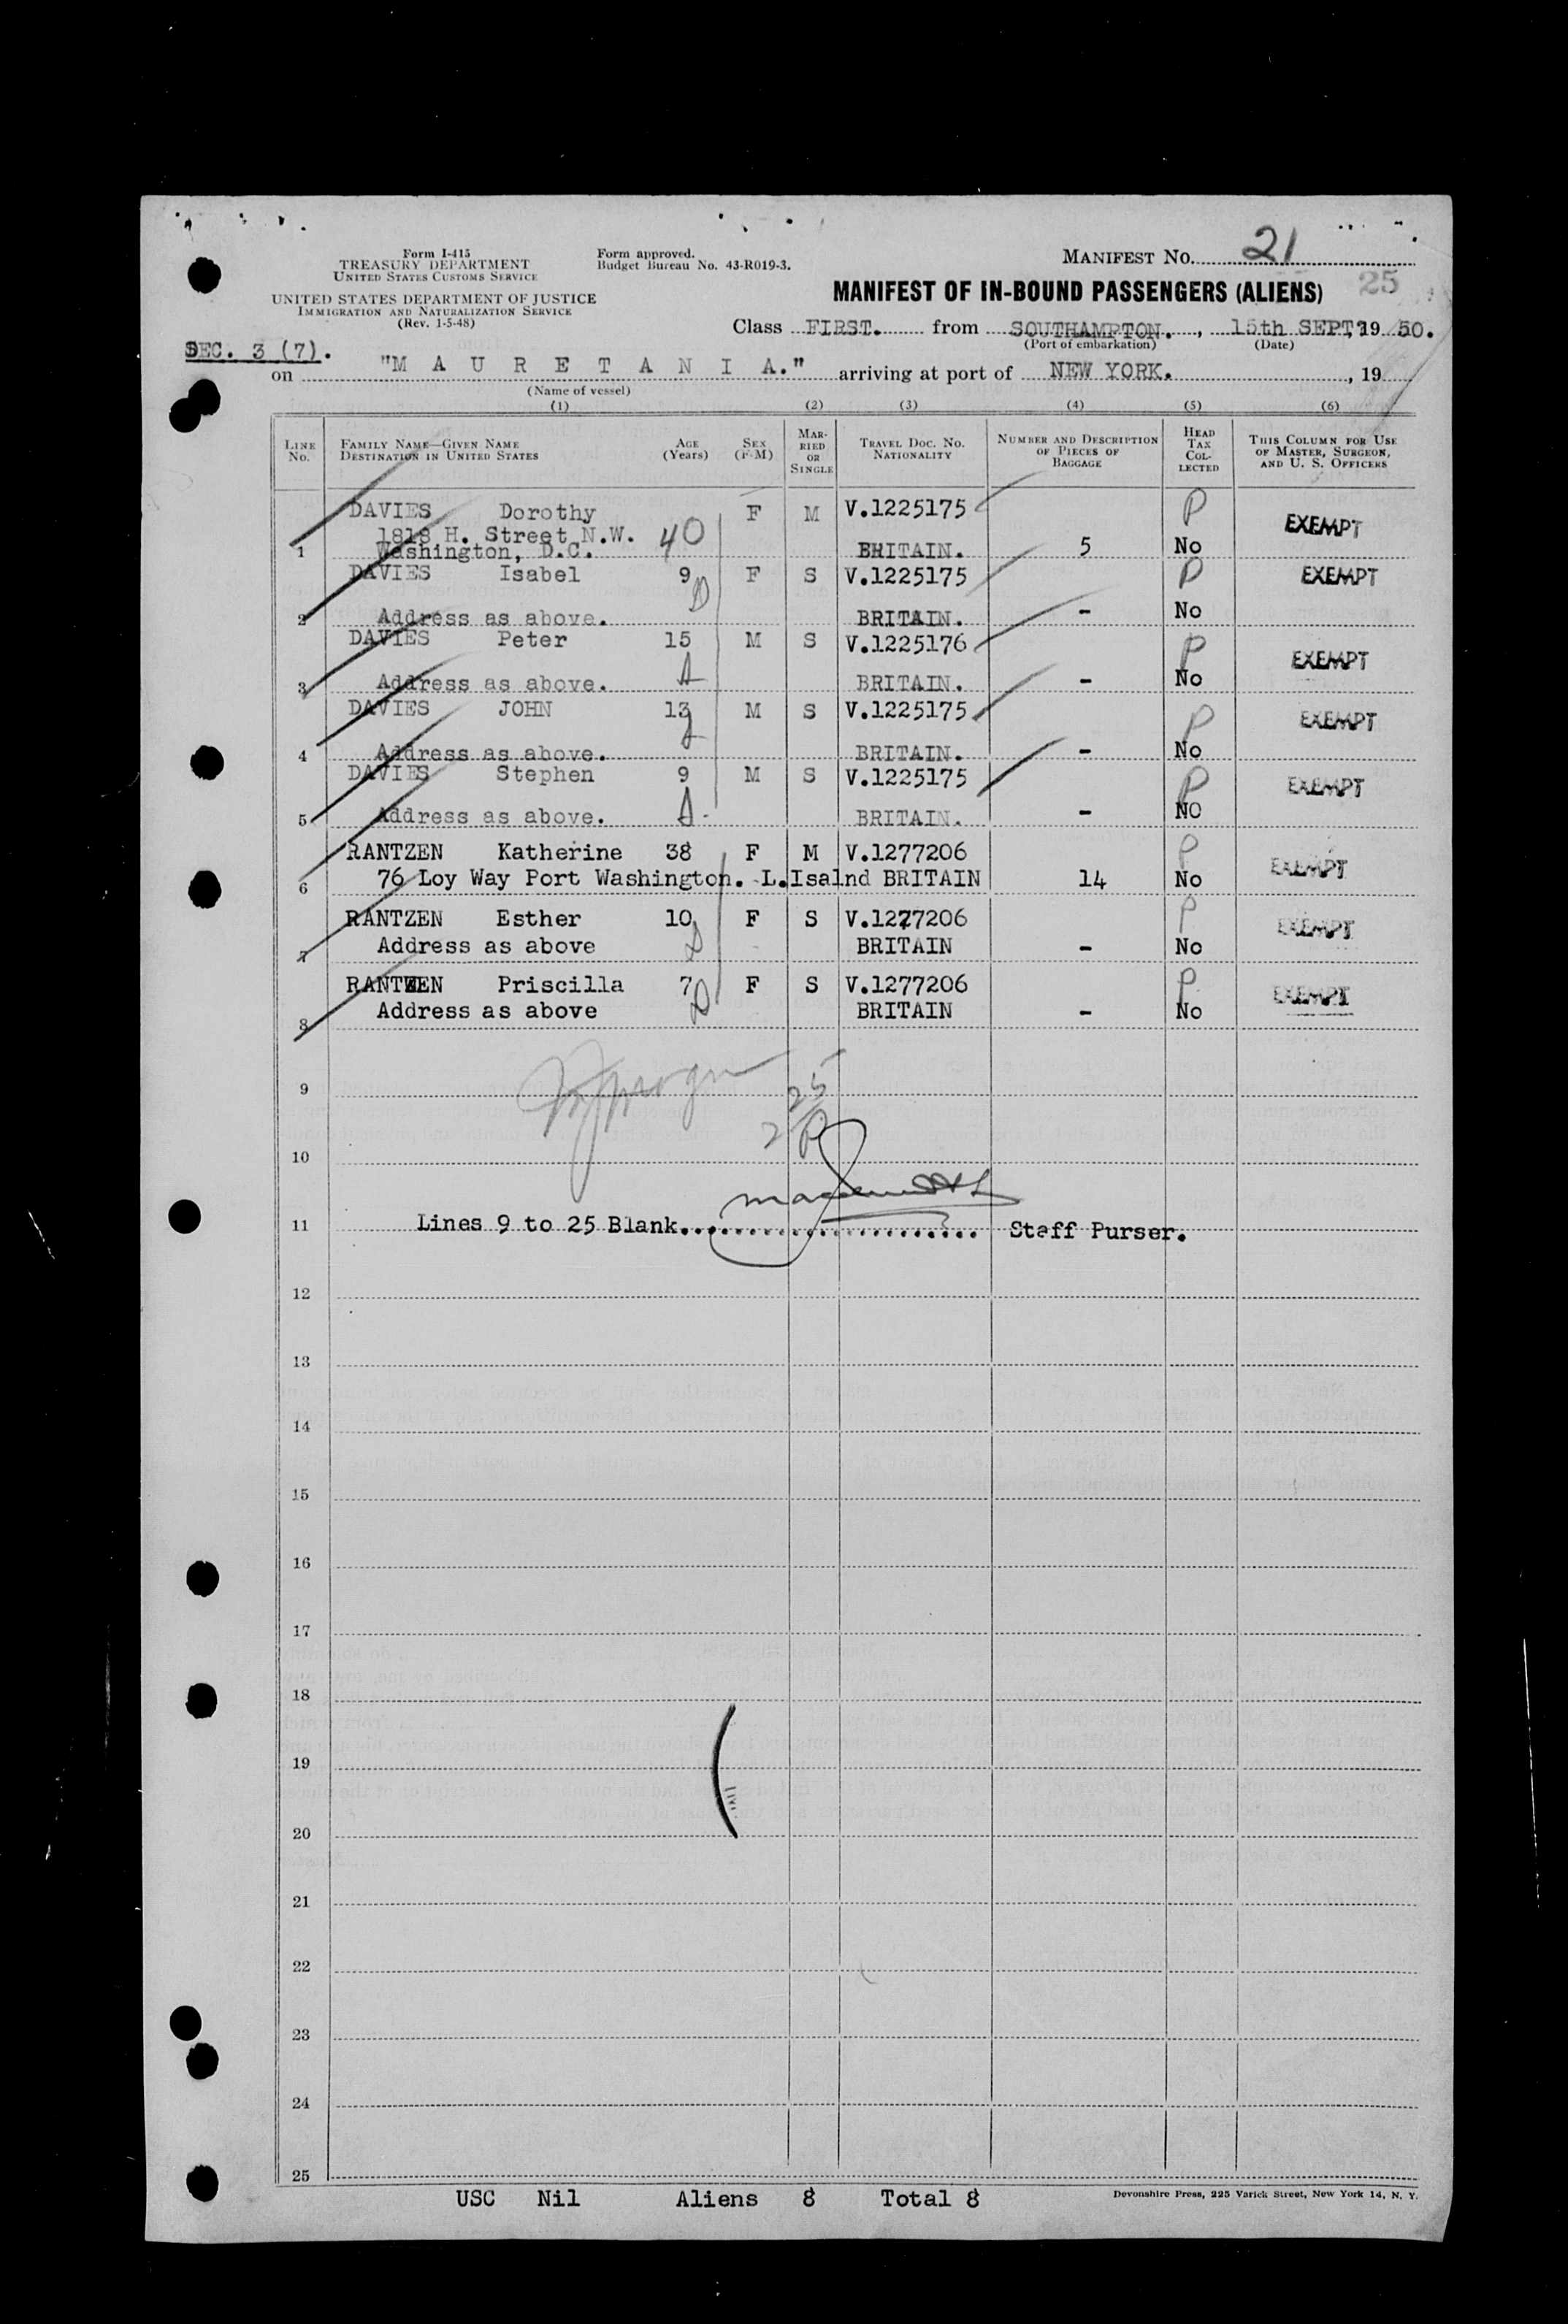 Form I-415
TREASURY DEPARTMENT
UNITED STATES CUSTOMS SERVICE
Form approved.
Budget Bureau No. 43-R019-3.
MANIFEST NO. 21
25
UNITED STATES DEPARTMENT OF JUSTICE
IMMIGRATION AND NATURALIZATION SERVICE
(Rev. 1-5-48)
MANIFEST OF IN-BOUND PASSENGERS (ALIENS)
Class FIRST. from SOUTHAMPTON., 15th SEPT, 19 50.
(Port of embarkation) (Date)
SEC. 3 (7).
on "M A U R E T A N I A." arriving at port of NEW YORK., 19
(Name of vessel)
(1) (2) (3) (4) (5) (6)
LINE NO. FAMILY NAME—GIVEN NAME DESTINATION IN UNITED STATES AGE (Years) SEX (F-M) MARRIED OR SINGLE TRAVEL DOC. NO. NATIONALITY NUMBER AND DESCRIPTION OF PIECES OF BAGGAGE HEAD TAX COLLECTED THIS COLUMN FOR USE OF MASTER, SURGEON, AND U. S. OFFICERS
DAVIES Dorothy 40 F M V.1225175 P EXEMPT
1818 H. Street N.W.
1 Washington, D.C. BRITAIN. 5 No
DAVIES Isabel 9 F S V.1225175 P EXEMPT
2 Address as above. BRITAIN. - No
DAVIES Peter 15 M S V.1225176 P EXEMPT
3 Address as above. BRITAIN. - No
DAVIES JOHN 13 M S V.1225175 P EXEMPT
4 Address as above. BRITAIN. - No
DAVIES Stephen 9 M S V.1225175 P EXEMPT
5 Address as above. BRITAIN. - NO
RANTZEN Katherine 38 F M V.1277206 P EXEMPT
6 76 Loy Way Port Washington. L.Isalnd BRITAIN 14 No
RANTZEN Esther 10 F S V.1277206 P EXEMPT
7 Address as above BRITAIN - No
RANTZEN Priscilla 7 F S V.1277206 P EXEMPT
8 Address as above BRITAIN - No
9
25
10
11 Lines 9 to 25 Blank. Staff Purser.
12
13
14
15
16
17
18
19
20
21
22
23
24
25
USC Nil Aliens 8 Total 8
Devonshire Press, 225 Varick Street, New York 14, N. Y.